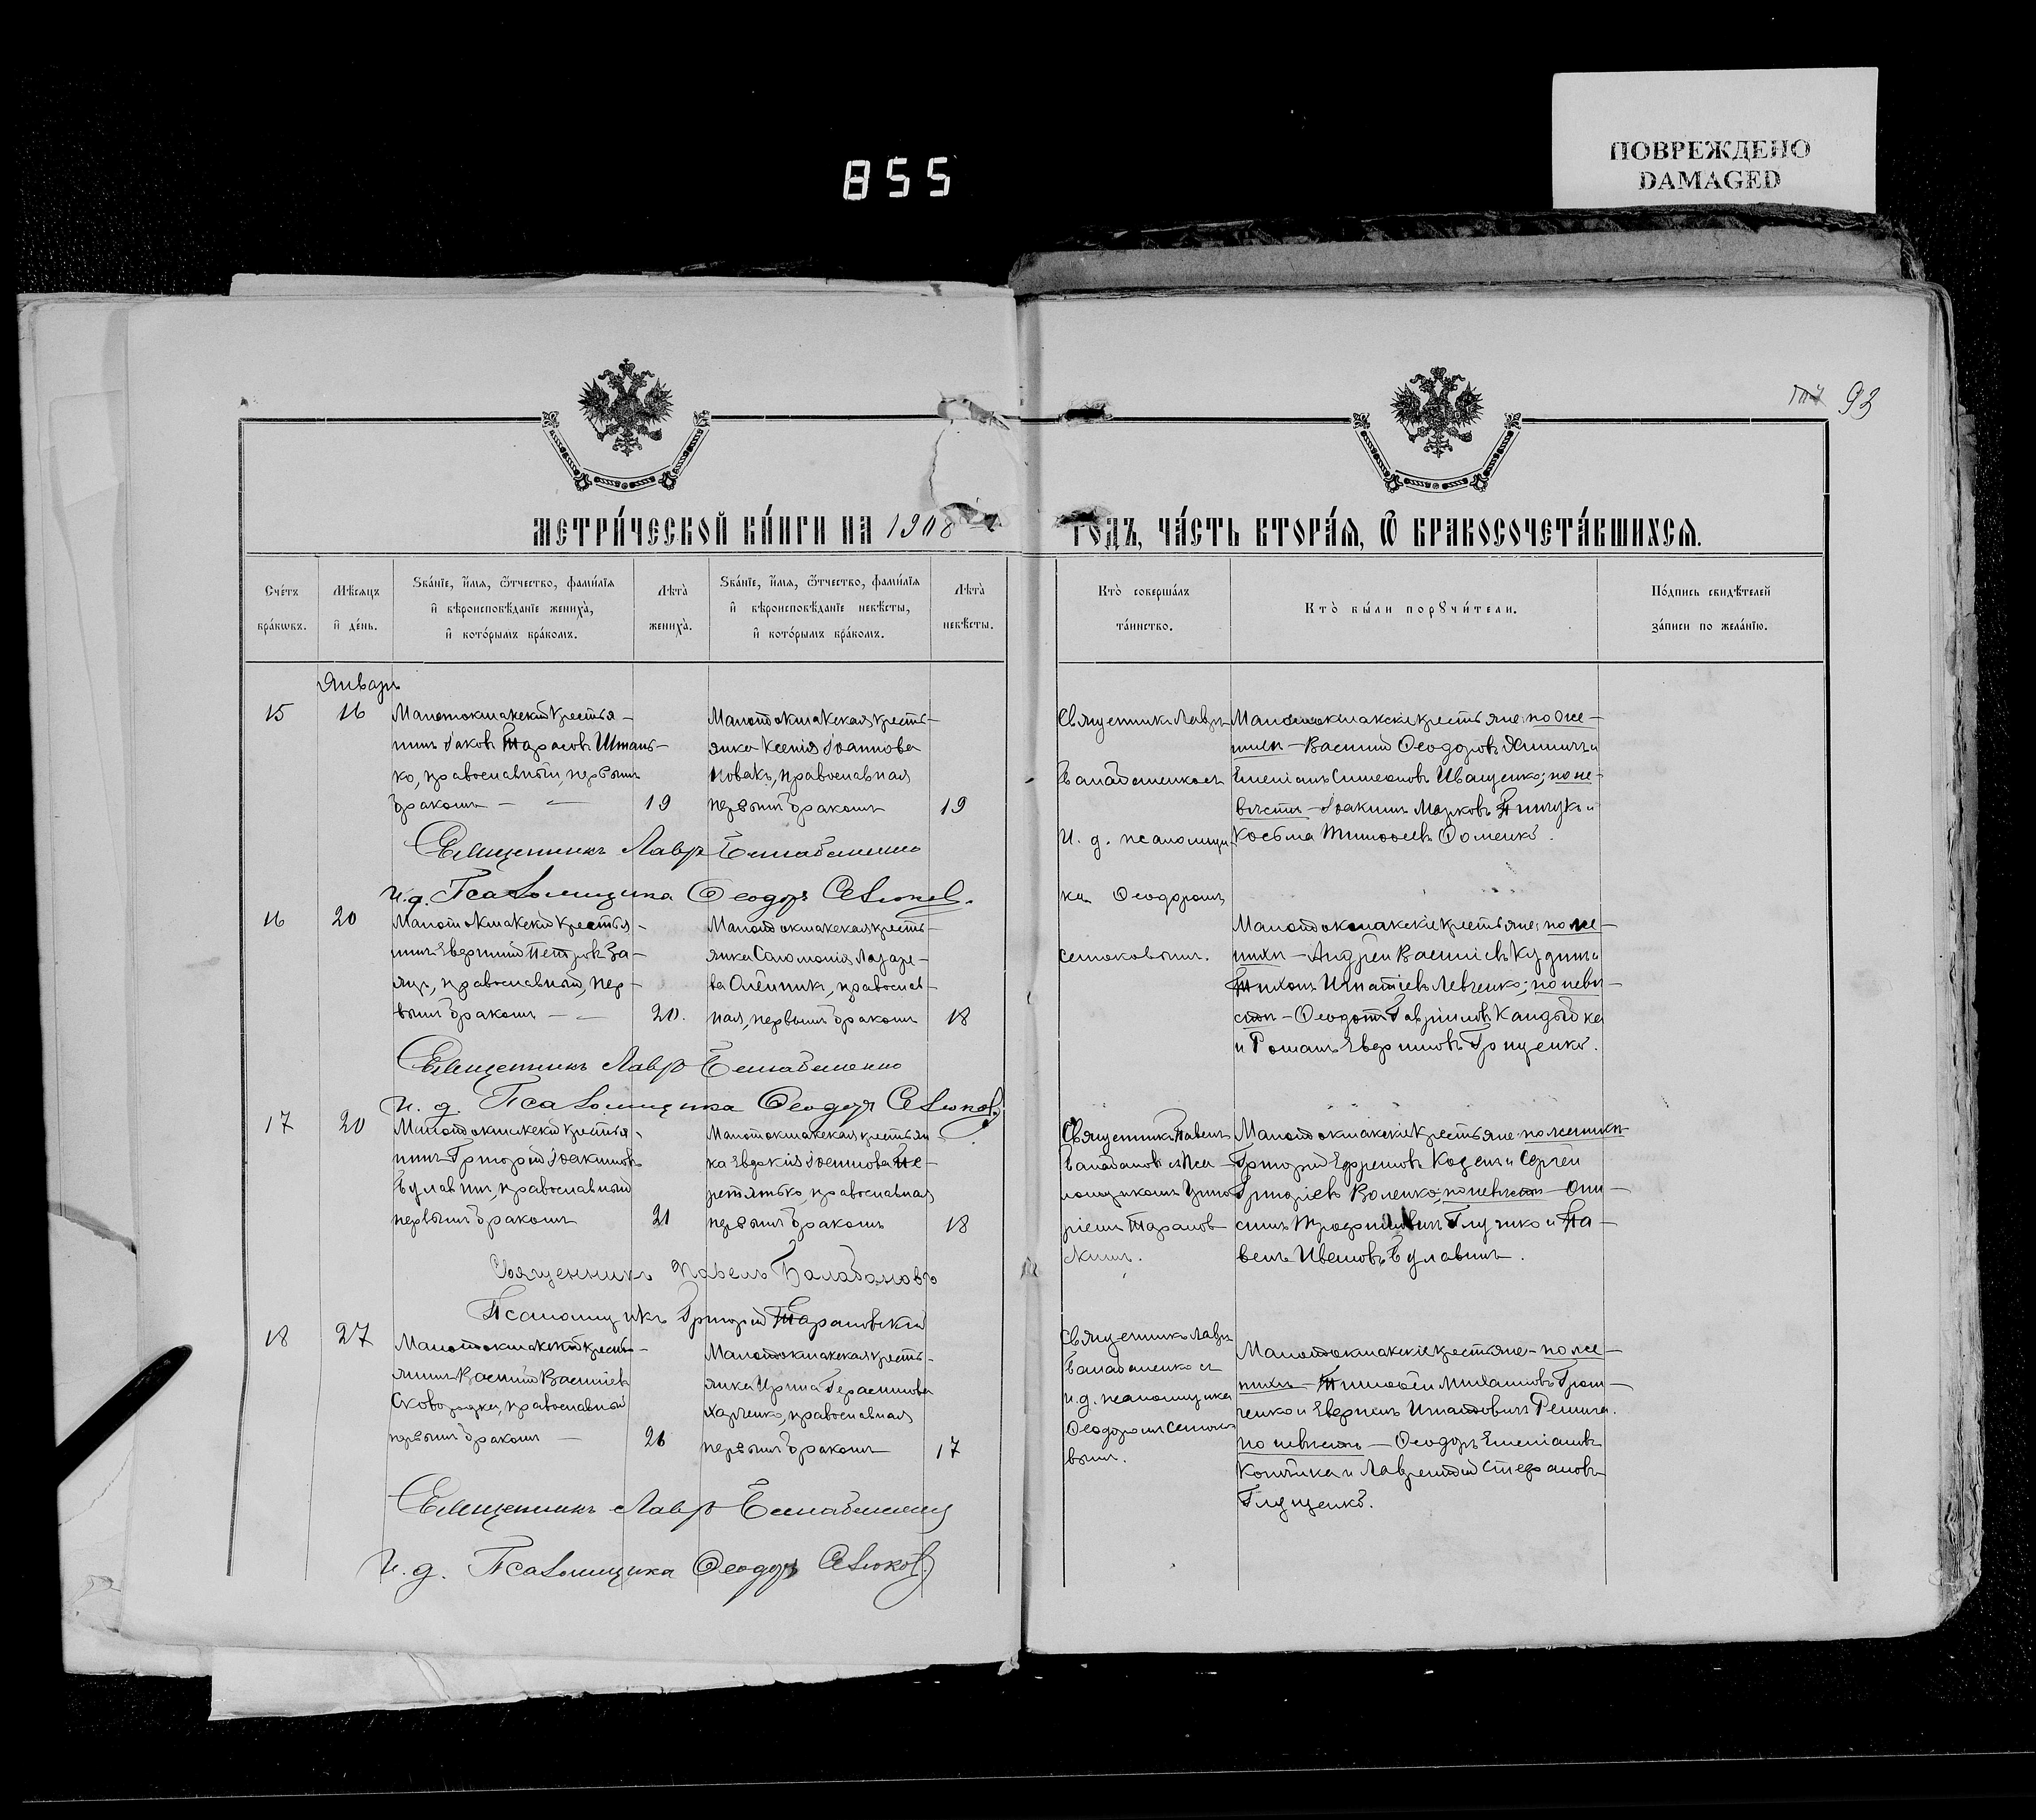 855
ПОВРЕЖДЕНО
DAMAGED
93
МЕТРИ́ЧЕСКОЙ КНИ́ГИ НА 1908
ГОДЪ, ЧА́СТЬ ВТОРА́Я, Ѿ БРАКОСОЧЕТА́ВШИХСЯ.
Сче́тъ бра́кωвъ.
Мѣ́сяцъ и҆ де́нь.
Ѕва́нїе, и҆́мя, ѻ҆́тчество, фами́лїя
и҆ вѣроисповѣ́данїе жениха̀,
и҆ кото́рымъ бра́комъ.
Лѣ́та жениха̀.
Ѕва́нїе, и҆́мя, ѻ҆́тчество, фами́лїя
и҆ вѣроисповѣ́данїе невѣ́сты,
и҆ кото́рымъ бра́комъ.
Лѣ́та невѣ́сты.
Кто̀ соверша́лъ
та́инство.
Кто̀ бы́ли порꙋчи́тели.
По́дпись свидѣ́телей
за́писи по жела́нїю.
Январь
15
16
Малотокмакский крестья-
нинъ Іаковъ Тарасовъ Штань-
ко, православный, первымъ
бракомъ
19
Малотокмакская кресть-
янка Ксенія Іоаннова
Новакъ, православная
первымъ бракомъ
19
Священникъ Лавръ
Балабаненко съ
И. д. псаломщи-
ка Ѳеодоромъ
Сенюковымъ.
Малотокмакскіе крестьяне: по же-
нихѣ – Василій Ѳеодоровъ и
Емеліанъ Симеоновъ Иващенко; по не-
вѣстѣ – Іоакимъ Марковъ и
Косьма Тимоѳеевъ Ѳоменко.
Священникъ Лавръ Балабаненко
И. д. Псаломщика Ѳеодоръ Сенюковъ.
16
20
Малотокмакский крестья-
нинъ Евгений Петровъ За-
яцъ, православный, пер-
вымъ бракомъ
20.
Малотокмакская кресть-
янка Саломонія Лазаре-
ва Олейникъ, православ-
ная, первымъ бракомъ
18
Малотокмакскіе крестьяне: по же-
нихѣ – Андрей Василіевъ и
Тихонъ Игнатіевъ Левченко; по невѣ-
стѣ – Ѳеодотъ Гавріиловъ Кандыбка
и Романъ Гриценко.
Священникъ Лавръ Балабаненко
И. д. Псаломщика Ѳеодоръ Сенюковъ
17
20
Малотокмакский крестья-
нинъ Григорій Іоакимовъ
Булавинъ, православный
первымъ бракомъ
21
Малотокмакская крестьян-
ка Евдокія Іоаннова Пе-
ретятько, православная
первымъ бракомъ
18
Священникъ Павелъ
Балабановъ съ Пса-
ломщикомъ Григо-
ріемъ Таранов-
скимъ.
Малотокмакскіе крестьяне: по женихѣ
Григорій Ефремовъ и Сергей
Григоріевъ Воленко; по невѣстѣ – Они-
симъ Трофимовичъ Глущенко и Па-
велъ Ивановъ Булавинъ.
Священникъ Павелъ Балабановъ
Псаломщикъ Григорій Тарановскій
18
27
Малотокмакский кресть-
янинъ Василій Василіевъ
Сковородка, православный
первымъ бракомъ
26
Малотокмакская кресть-
янка Ирина Герасимова
Харченко, православная
первымъ бракомъ
17
Священникъ Лавръ
Балабаненко съ
и. д. псаломщика
Ѳеодоромъ Сенюко-
вымъ.
Малотокмакскіе крестьяне – по же-
нихѣ – Тимоѳей Михаиловъ
и
по невѣстѣ – Ѳеодоръ Емеліановъ
Копейка и Лаврентій Стефановъ
Глущенко.
Священникъ Лавръ Балабаненко
И. д. Псаломщика Ѳеодоръ Сенюковъ.